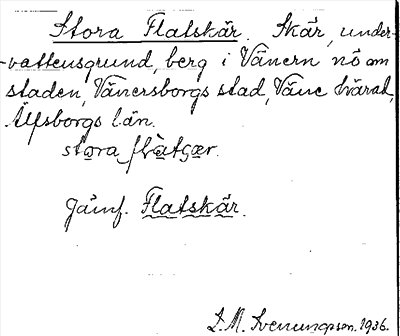 Stora Flatskär. Skär, under-
-vattensgrund, berg i Vänern nö om
staden, Vänersborgs stad, Väne härad,
Älfsborgs län.
stora flàtʃær.
Jämf. Flatskär.
L. M. Svenungsson. 1936.